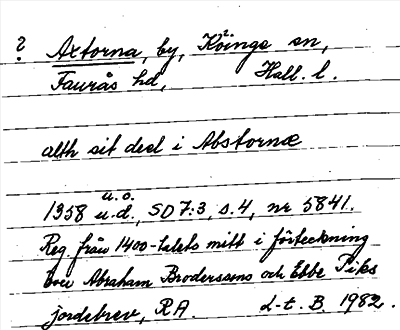 ? Axtorna, by, Köinge sn,
Faurås hd, Hall. l.
alth sit deel i Abstornæ
u. o.
1358 u. d., SD 7:3, s. 4, nr 5841.
Reg. från 1400-talets mitt i förteckning
över Abraham Broderssons och Ebbe Piks
jordebrev, RA. L-t. B. 1982.